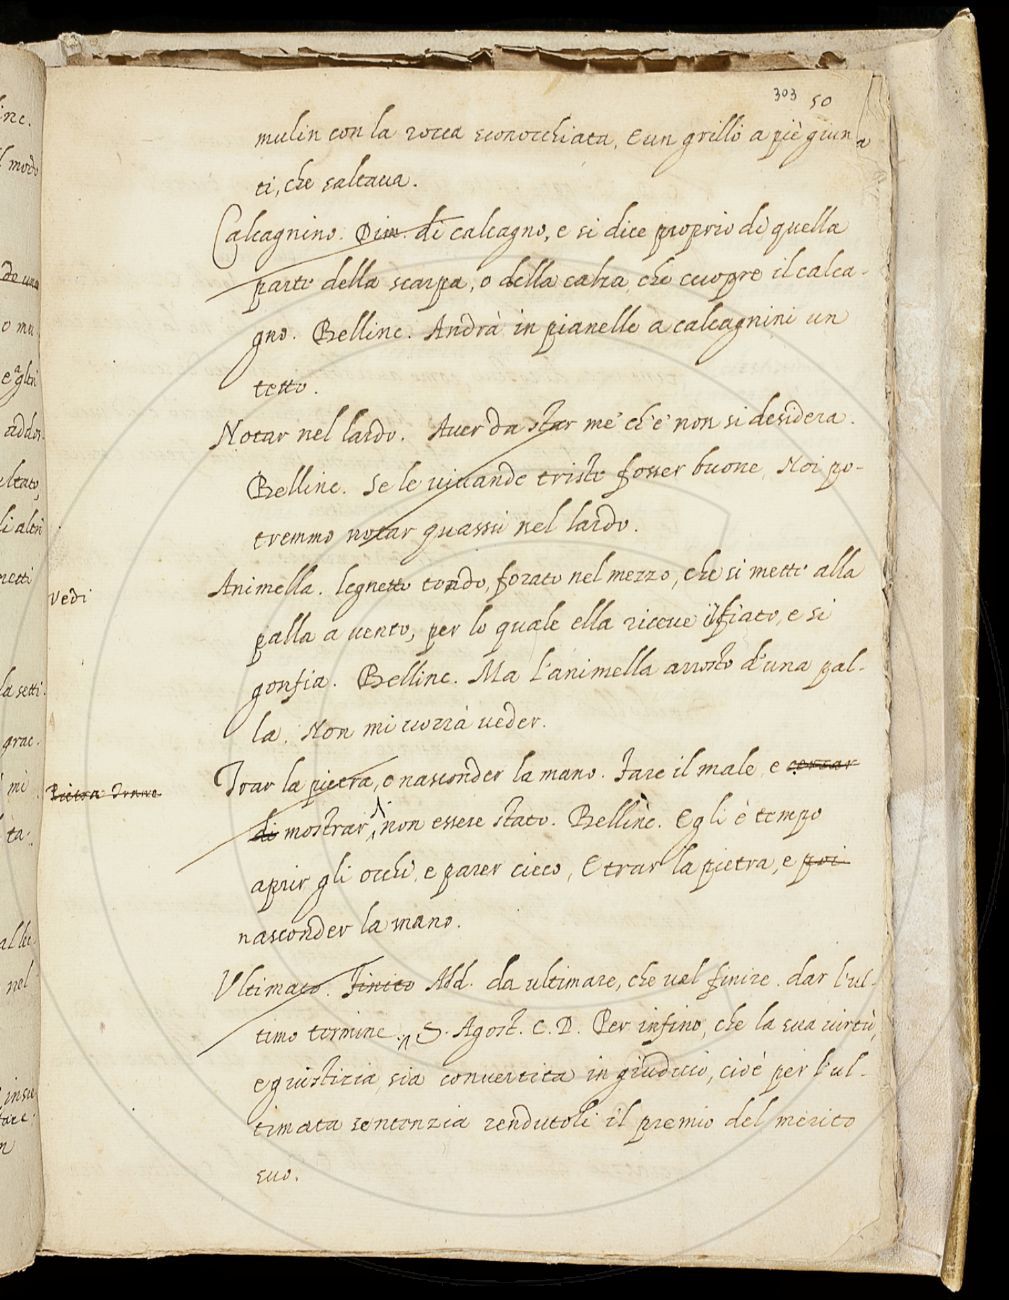 303 50
mulin con la rocca sconocchiata, e un grillo a piè giun
ti, che saltaua.
Calcagnino. Dim. di calcagno, e si dice proprio di quella
parte della scarpa, o della calza, che cuopre il calca-
gno. Bellinc. Andrà in pianelle a calcagnini un
tetto.
Notar nel lardo. Auer da star me' ch'e' non si desidera.
Bellinc. Se le viuande triste fosser buone, Noi po-
tremmo notar quassù nel lardo.
Animella. legnetto tondo, forato nel mezzo, che si mette alla
vedi
palla a vento, per lo quale ella riceue il fiato, e si
gonfia. Bellinc. Ma l'animella arrosto d'una pal-
la. Non mi vorrà veder.
Trar la pietra, e nasconder la mano. Fare il male, e cercar
Pietra Trarre
di mostrar non essere stato. Bellinc. Egli è tempo
aprir gli occhi, e parer cieco, E trar la pietra, e poi
nasconder la mano.
Vltimato. Finito Add. da ultimare, che val finire. dar l'ul-
timo termine. S. Agost. C. D. Per infino, che la sua virtù,
e giustizia, sia convertita in giudicio, cioè per l'ul-
timata sentenzia rendutoli il premio del merito
suo.